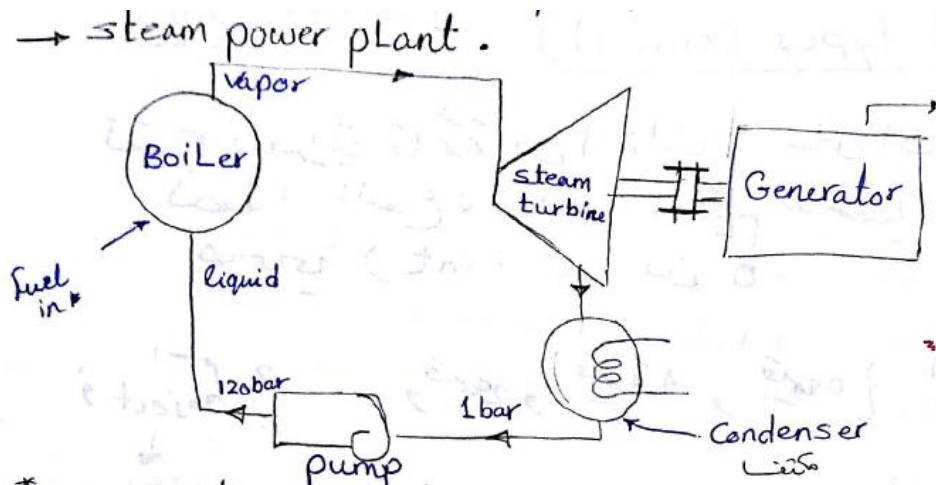 → steam power plant.
vapor
Boiler
steam
turbine
Generator
fuel
in
liquid
120bar
1bar
pump
Condenser
مكثف